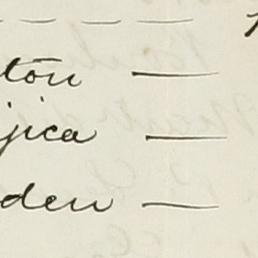 ton —
jica —
den —